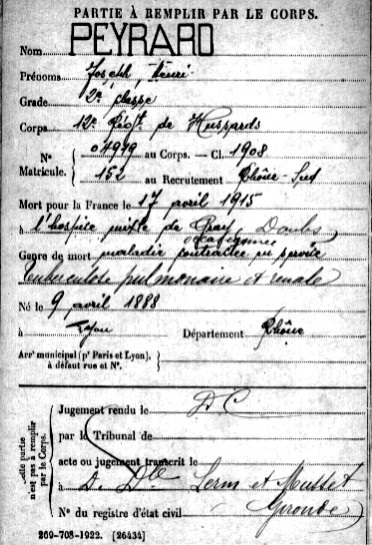 PARTIE À REMPLIR PAR LE CORPS.
Nom PEYRARD
Prénoms Joseph Henri
Grade 2e classe
Corps 12e Régt de Hussards
N° 04949 au Corps. — Cl. 1908
Matricule. 152 au Recrutement Rhône-Sud
Mort pour la France le 17 avril 1915
à l'hospice mixte de Gray, Doubs
Genre de mort maladie contractée en service
tuberculose pulmonaire et rénale
Né le 9 avril 1888
à Lyon Département Rhône
Arrt municipal (pr Paris et Lyon),
à défaut rue et N°.
Cette partie
n'est pas à remplir
par le Corps.
Jugement rendu le D C
par le Tribunal de
acte ou jugement transcrit le
à D. Dle Lerm et Musset
Gironde
N° du registre d'état civil
269-708-1922. [26434]